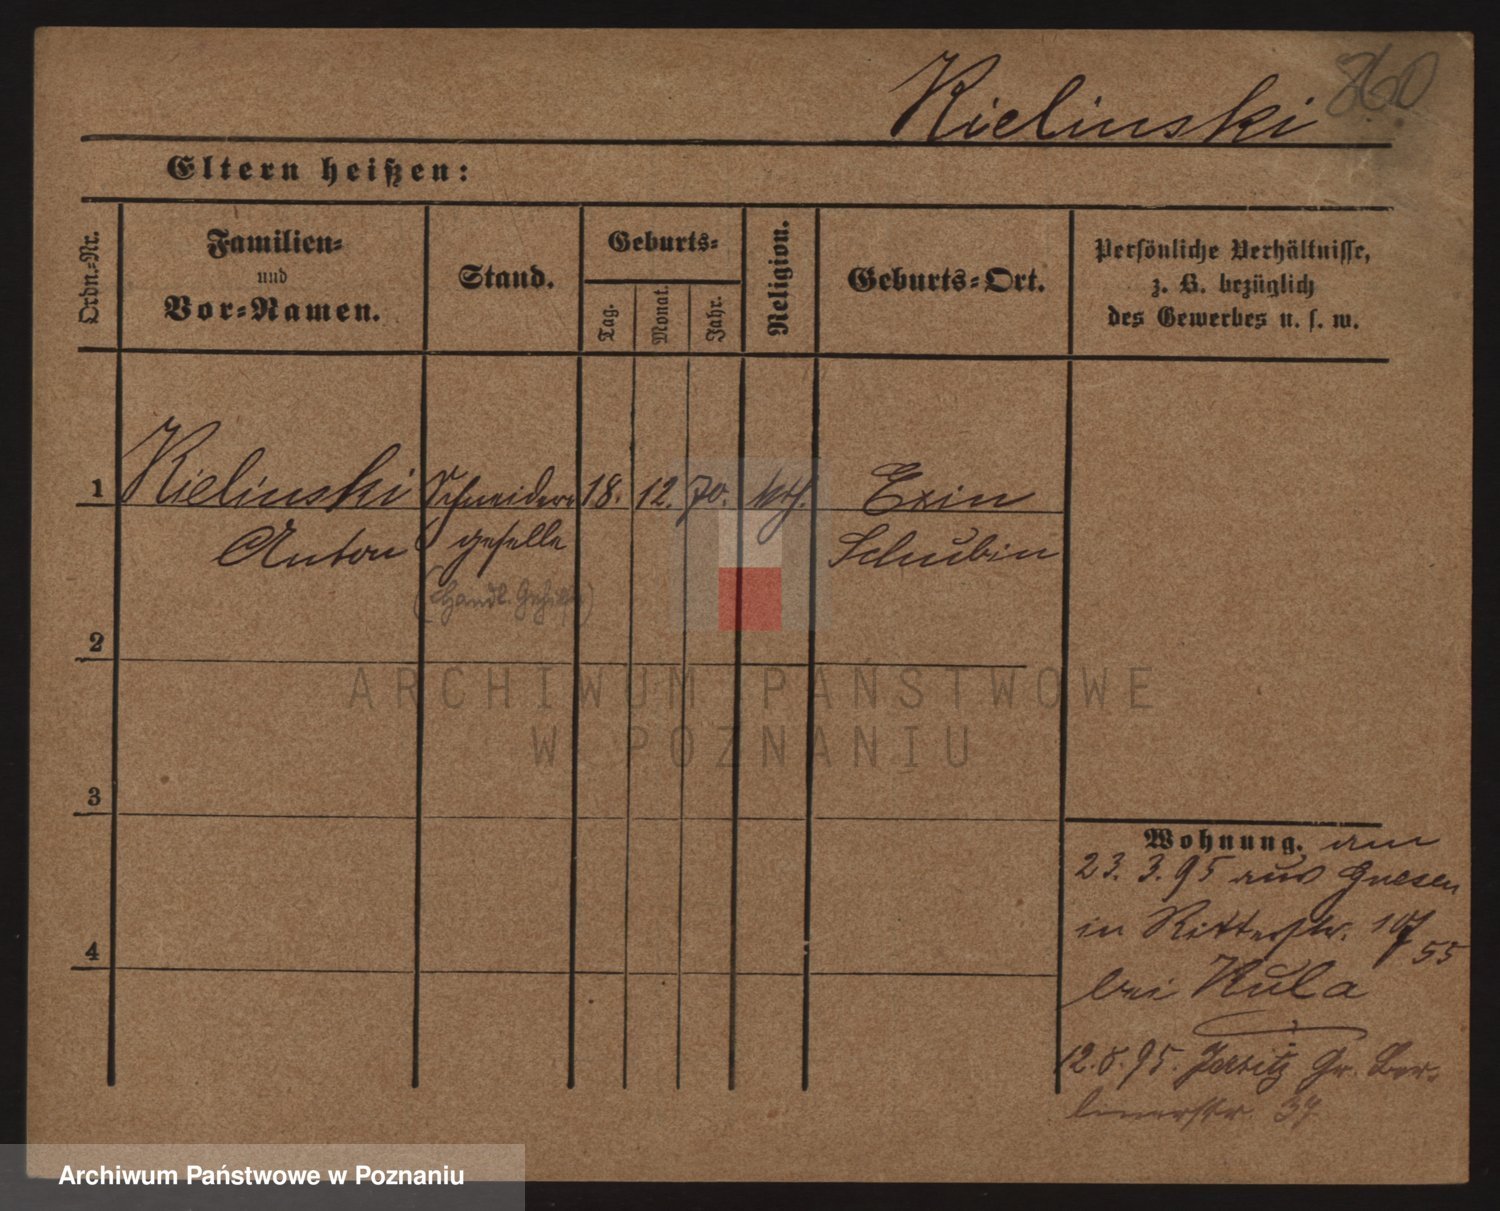 860
Kielinski
Eltern heißen:
Ordn.-Nr.
Familien-
und
Vor-Namen.
Stand.
Geburts-
Tag.
Monat.
Jahr.
Religion.
Geburts-Ort.
Persönliche Verhältnisse,
z. B. bezüglich
des Gewerbes u. s. w.
1 Kielinski Schneider 18. 12. 70. kth. Exin
Anton geselle Schubin
(Handl. Gehilfe)
2
ARCHIWUM PAŃSTWOWE
W POZNANIU
3
Wohnung. am
23. 3. 95 aus Gnesen
in Ritterstr.
55
bei Kula
12. 8. 95. Jersitz Gr. Ber-
linerstr. 34
4
Archiwum Państwowe w Poznaniu